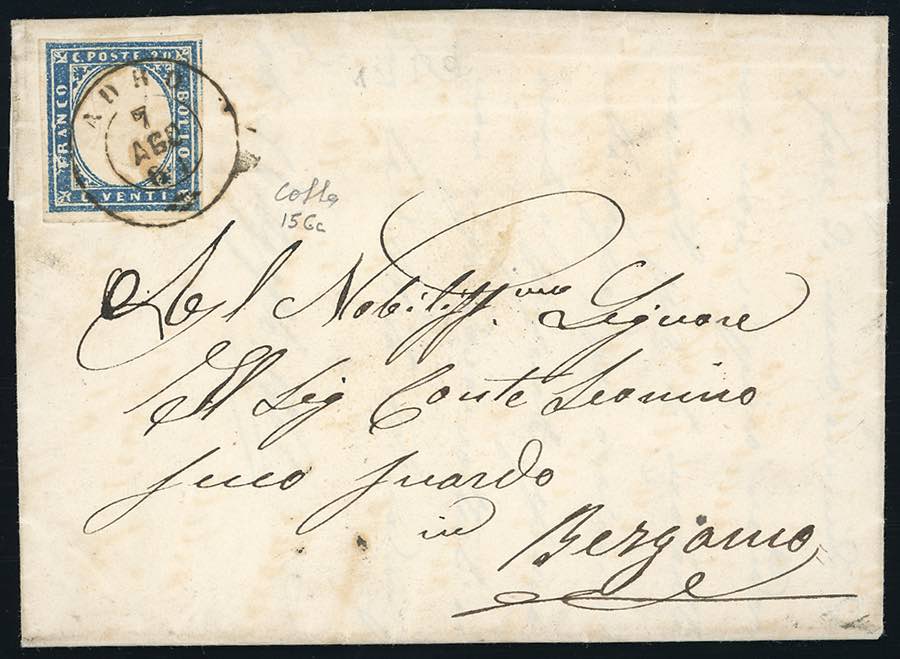 C. POSTE 20
FRANCO
BOLLO
C. VENTI
ADRO
7
AGO
15Ca
Al Nobiliss.mo Signore
Il Sig Conte Leonino
Secco Suardo
in
Bergamo